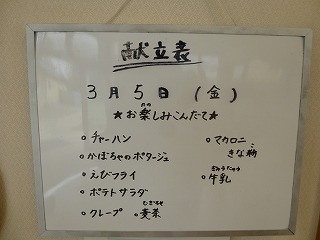 献立表
3月5日(金)
★お楽しみこんだて★
○チャーハン
○かぼちゃのポタージュ
○えびフライ
○ポテトサラダ
○クレープ ○麦茶
むぎちゃ
○マカロニ
きな粉
○牛乳
ぎゅうにゅう